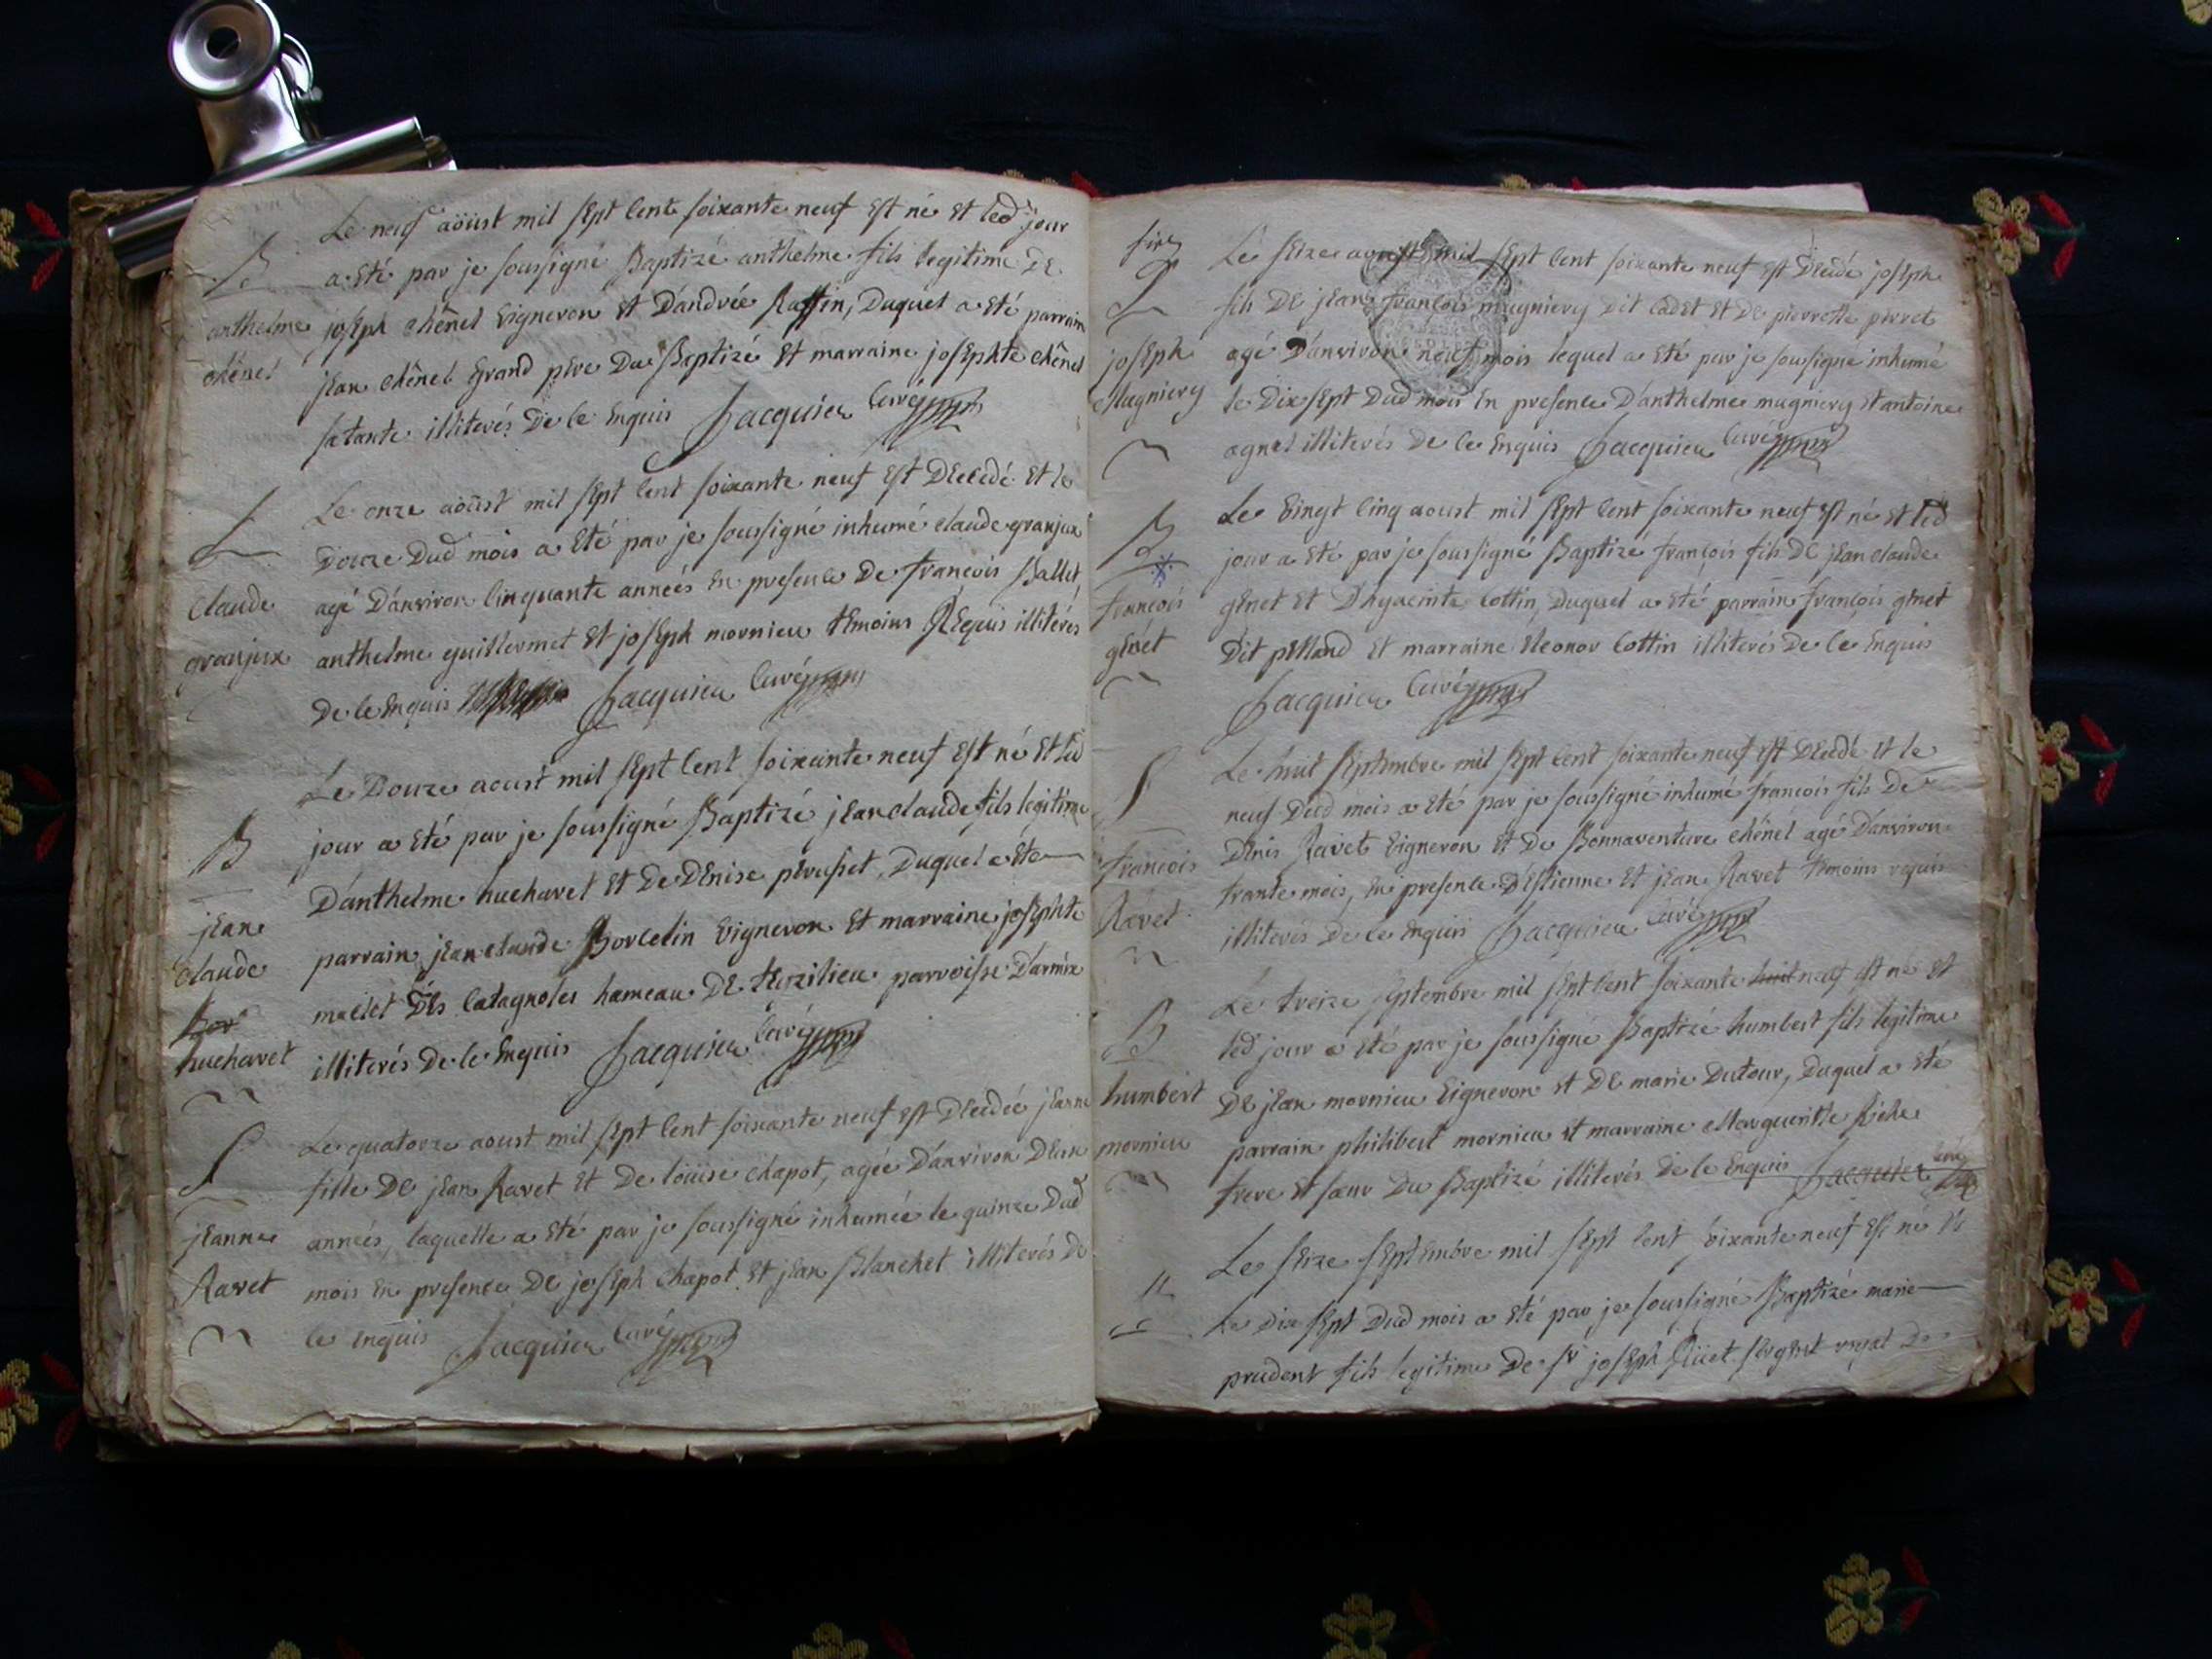 B
anthelme
chênel
Le neuf aöust mil sept cent soixante neuf est né et led jour
a eté par je soussigné Baptizé anthelme fils legitime de
joseph chênel vigneron et d'andrée Raffin, duquel a eté parrain
jean chênel grand pere du Baptizé et marraine josephte chênel
sa tante illiterés de ce enquis Jacquier curé
S
claude
granjux
Le onze aöust mil sept cent soixante neuf est decedé et le
douze dud mois a eté par je soussigné inhumé claude granjux
agé d'anviron cinquante années en presence de francois Ballet
anthelme guillermet et joseph mornieu temoins Requis illiterés
de ce enquis Jacquier curé
B
jean
claude
huchavet
Le Douze aoust mil sept cent soixante neuf est né et led
jour a eté par je soussigné Baptizé jean claude fils legitime
d'anthelme huchavet et de denise perusset, duquel a eté
parrain jean claude Borcelin vigneron et marraine josephte
des catagnoles hameau de parroisse d'armix
illiterés de ce enquis Jacquier curé
S
jeanne
Ravet
Le quatorze aoust mil sept cent soixante neuf est decedée jeanne
fille de jean Ravet et de loüise chapot, agée d'anviron deux
années, laquelle a eté par je soussigné inhumée le quinze dud
mois en presence de joseph chapot et jean Blanchet illiterés de
ce enquis Jacquier curé
S
joseph
Mugniery
Le seize aoust mil sept cent soixante neuf est decedé joseph
fils de jean francois mugniery dit cadet et de pierrette perret
agé d'anviron neuf mois lequel a eté par je soussigne inhumé
le dix sept dud mois en presence d'anthelme mugniery et antoine
agnel illiterés de ce enquis Jacquier curé
B
francois
genet
Le vingt cinq aoust mil sept cent soixante neuf est né et led
jour a eté par je soussigné Baptizé françois fils de jean claude
genet et d'hyacinte cottin, duquel a eté parrain françois genet
dit petland et marraine eleonor cottin illiterés de ce enquis
Jacquier curé
S
francois
Ravet
Le huit septembre mil sept cent soixante neuf est decedé et le
neuf dud mois a eté par je soussigné inhumé francois fils de
denis Ravet vigneron et de Bonnaventure chênel agé d'anviron
trante mois, en presence d'estienne et jean Ravet temoins requis
illiterés de ce enquis Jacquier curé
B
humbert
mornieu
Le treize septembre mil sept cent soixante huit neuf est né et
led jour a eté par je soussigné Baptizé humbert fils legitime
de jean mornieu vigneron et de marie dutour, duquel a eté
parrain philibert mornieu et marraine Marguerite
frere et sœur du Baptizé illiterés de ce enquis Jacquier curé
Le seize septembre mil sept cent soixante neuf est né et
Le dix sept dud mois a eté par je soussigné Baptizé marie
prudent fils legitime de sr joseph sergent royal de